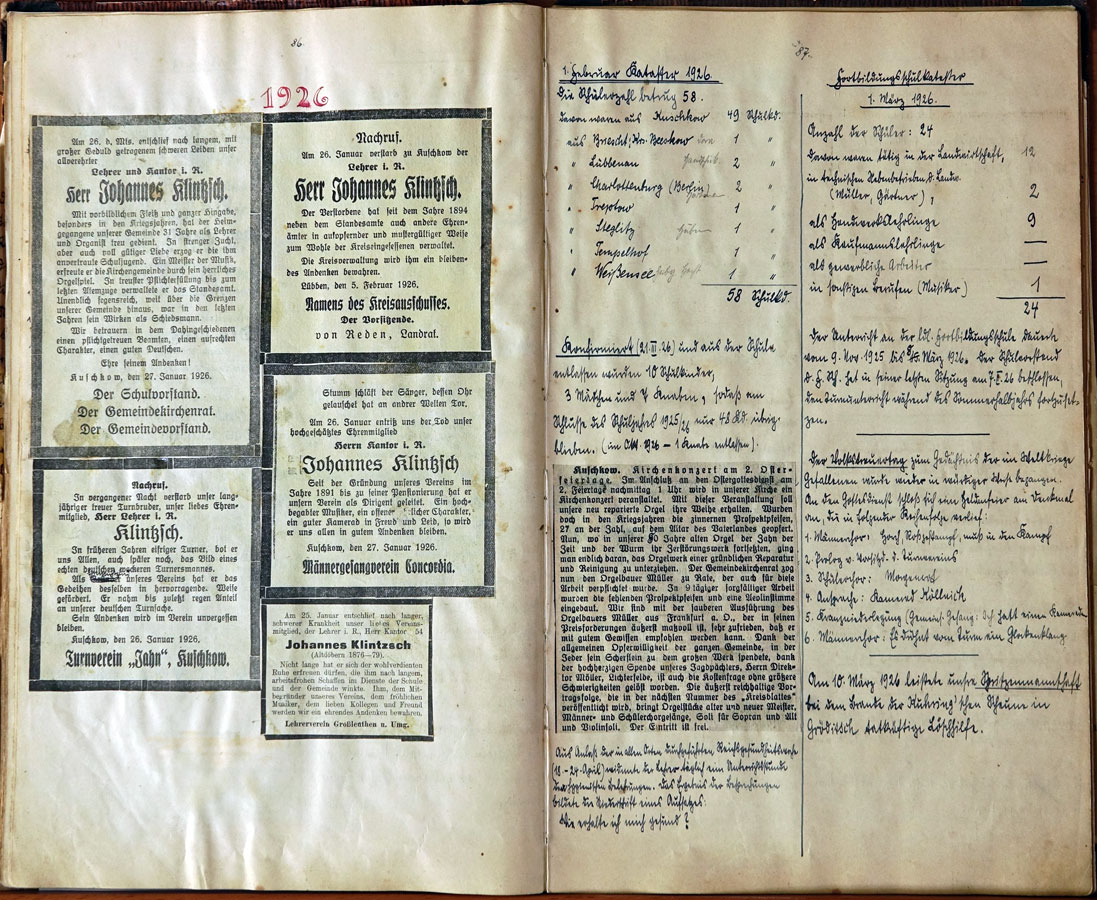 86.
1926
Am 26. d. Mts. entschlief nach langem, mit
großer Geduld getragenem schweren Leiden unser
allverehrter
Lehrer und Kantor i. R.
Herr Johannes Klintzsch.
Mit vorbildlichem Fleiß und ganzer Hingabe,
besonders in den Kriegsjahren, hat der Heim-
gegangene unserer Gemeinde 31 Jahre als Lehrer
und Organist treu gedient. In strenger Zucht,
aber auch voll gütiger Liebe erzog er die ihm
anvertraute Schuljugend. Ein Meister der Musik,
erfreute er die Kirchengemeinde durch sein herrliches
Orgelspiel. In treuster Pflichterfüllung bis zum
letzten Atemzuge verwaltete er das Standesamt.
Unendlich segensreich, weit über die Grenzen
unserer Gemeinde hinaus, war in den letzten
Jahren sein Wirken als Schiedsmann.
Wir betrauern in dem Dahingeschiedenen
einen pflichtgetreuen Beamten, einen aufrechten
Charakter, einen guten Deutschen.
Ehre seinem Andenken!
Kuschkow, den 27. Januar 1926.
Der Schulvorstand.
Der Gemeindekirchenrat.
Der Gemeindevorstand.
Nachruf.
In vergangener Nacht verstarb unser lang-
jähriger treuer Turnbruder, unser liebes Ehren-
mitglied, Herr Lehrer i. R.
Klintzsch.
In früheren Jahren eifriger Turner, bot er
uns Allen, auch später noch, das Bild eines
echten deutschen wackeren Turnersmannes.
Als unseres Vereins hat er das
Gedeihen desselben in hervorragende. Weise
gefördert. Er nahm bis zuletzt regen Anteil
an unserer deutschen Turnsache.
Sein Andenken wird im Verein unvergessen
bleiben.
Kuschkow, den 26. Januar 1926.
Turnverein „Jahn“, Kuschkow.
Nachruf.
Am 26. Januar verstarb zu Kuschkow der
Lehrer i. R.
Herr Johannes Klintzsch.
Der Verstorbene hat seit dem Jahre 1894
neben dem Standesamte auch andere Ehren-
ämter in aufopfernder und mustergültiger Weise
zum Wohle der Kreiseingesessenen verwaltet.
Die Kreisverwaltung wird ihm ein bleiben-
des Andenken bewahren.
Lübben, den 5. Februar 1926.
Namens des Kreisausschusses.
Der Vorsitzende.
von Reden, Landrat.
Stumm schläft der Sänger, dessen Ohr
gelauschet hat an andrer Welten Tor.
Am 26. Januar entriß uns der Tod unser
hochgeschätztes Ehrenmitglied
Herrn Kantor i. R.
Johannes Klintzsch
Seit der Gründung unseres Vereins im
Jahre 1891 bis zu seiner Pensionierung hat er
unsern Verein als Dirigent geleitet. Ein hoch-
begabter Musiker, ein offener licher Charakter,
ein guter Kamerad in Freud und Leid, so wird
er uns allen in gutem Andenken bleiben.
Kuschkow, den 27. Januar 1926.
Männergesangverein Concordia.
Am 25. Januar entschlief nach langer,
schwerer Krankheit unser liebes Vereins-
mitglied, der Lehrer i. R., Herr Kantor 54
Johannes Klintzsch
(Altdöbern 1876—79).
Nicht lange hat er sich der wohlverdienten
Ruhe erfreuen dürfen, die ihm nach langem,
arbeitsfrohen Schaffen im Dienste der Schule
und der Gemeinde winkte. Ihm, dem Mit-
begründer unseres Vereins, dem fröhlichen
Musiker, dem lieben Kollegen und Freund
werden wir ein ehrendes Andenken bewahren.
Lehrerverein Großleuthen u. Umg.
87.
1. Februar Kataster 1926.
Die Schülerzahl betrug 58.
davon waren aus Kuschkow 49 Schulkd.
aus Kr. Beeskow 1 "
" Lübbenau 2 "
" Charlottenburg (Berlin) 2 "
" Treptow 1 "
" Steglitz 1 "
" Tempelhof 1 "
" Weißensee 1 "
58 Schulkd.
Konfirmiert (21. III. 26) und aus der Schule
entlassen wurden 10 Schulkinder,
3 Mädchen und 7 Knaben, sodaß am
Schlusse des Schuljahres 1925/26 nur 48 Kd. übrig-
blieben. (im Okt. 1926 – 1 Knabe entlassen).
Kuschkow. Kirchenkonzert am 2. Oster-
feiertage. Im Anschluß an den Ostergottesdienst am
2. Feiertage nachmittag 1 Uhr wird in unserer Kirche ein
Kirchenkonzert veranstaltet. Mit dieser Veranstaltung soll
unsere neu reparierte Orgel ihre Weihe erhalten. Wurden
doch in den Kriegsjahren die zinnernen Prospektpfeifen,
27 an der Zahl, auf dem Altar des Vaterlandes geopfert.
Nun, wo in unserer 80 Jahre alten Orgel der Zahn der
Zeit und der Wurm ihr Zerstörungswerk fortsetzten, ging
man endlich daran, das Orgelwerk einer gründlichen Reparatur
und Reinigung zu unterziehen. Der Gemeindekirchenrat zog
nun den Orgelbauer Müller zu Rate, der auch für diese
Arbeit verpflichtet wurde. In 9 tägiger sorgfältiger Arbeit
wurden die fehlenden Prospektpfeifen und eine Aeolinstimme
eingebaut. Wir sind mit der sauberen Ausführung des
Orgelbauers Müller aus Frankfurt a. O., der in seinen
Preisforderungen äußerst maßvoll ist, sehr zufrieden, daß er
mit gutem Gewissen empfohlen werden kann. Dank der
allgemeinen Opferwilligkeit der ganzen Gemeinde, in der
Jeder sein Scherflein zu dem großen Werk spendete, dank
der hochherzigen Spende unseres Jagdpächters, Herrn Direk-
tor Müller, Lichterfelde, ist auch die Kostenfrage ohne größere
Schwierigkeiten gelöst worden. Die äußerst reichhaltige Vor-
tragsfolge, die in der nächsten Nummer des „Kreisblattes“
veröffentlicht wird, bringt Orgelstücke alter und neuer Meister,
Männer- und Schülerchorgesänge, Soli für Sopran und Alt
und Violinsoli. Der Eintritt ist frei.
Aus Anlaß der in allen Orten durchgeführten Reichsgesundheitswoche
(18.–24. April) widmete der Lehrer täglich eine Unterrichtsstunde
den hygienischen Belehrungen. Das Ergebnis der Besprechungen
bildete die Niederschrift eines Aufsatzes:
Wie erhalte ich mich gesund?
Fortbildungsschulkataster
1. März 1926.
Anzahl der Schüler: 24
Davon waren tätig in der Landwirtschaft, 12
in technischen Nebenbetrieben d. Landw.
(Müller, Gärtner), 2
als Handwerkslehrlinge 9
als Kaufmannslehrlinge —
als gewerbliche Arbeiter —
in sonstigen Berufen (Musiker) 1
24
Der Unterricht an der ldl. Fortbildungsschule dauerte
vom 9. Nov. 1925 bis März 1926. Der Schulvorstand
d. F. Sch. hat in seiner letzten Sitzung am beschlossen,
den Turnunterricht während des Sommerhalbjahrs fortzuset-
zen.
Der Volkstrauertag zum Gedächtnis der im Weltkriege
Gefallenen wurde wieder in würdiger Form begangen.
An den Gottesdienst schloß sich eine Heldenfeier am Denkmal
an, die in folgender Reihenfolge verlief:
1. Männerchor: Horch, Roßgestampf, muß in den Kampf
2. Prolog v. Vorsitzd. d. Turnvereins
3. Schülerchor: Morgenrot
4. Ansprache: Kamerad
5. Kranzniederlegung (Gemeins. Gesang: Ich hatt einen Kamerad
6. Männerchor: Es hallt vom Turm ein Glockenklang.
Am 10. März 1926 leistete unsre Spritzenmannschaft
bei dem Brande der Kuhring'schen Scheune in
Gröditsch tatkräftige Löschhilfe.